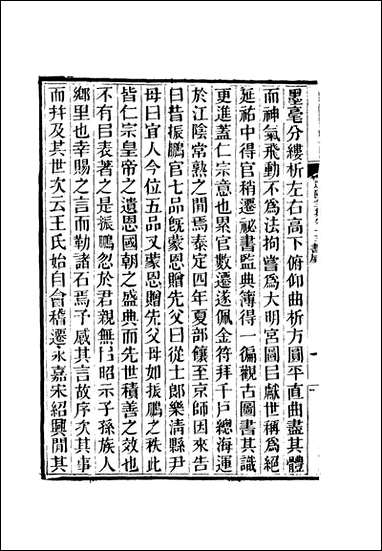 墨毫分縷析左右高下俯仰曲析方圓平直曲盡其體
而神氣飛動不爲法拘嘗爲大明宮圖㠯獻世稱爲絕
延祐中得官稍遷祕書監典簿得一徧觀古圖書其識
更進蓋仁宗意也累官數遷遂佩金符拜千戶總海運
於江陰常熟之間焉泰定四年夏部饟至京師因來告
曰昔振鵬官七品旣蒙恩贈先父曰從士郎樂淸縣尹
母曰宜人今位五品又蒙恩贈先父母如振鵬之秩此
皆仁宗皇帝之遺恩國朝之盛典而先世積善之效也
不有㠯表著之是振鵬忽於君親無㠯昭示子孫族人
鄉里也幸賜之言而勒諸石焉予感其言故序次其事
而幷及其世次云王氏始自會稽遷永嘉宋紹興閒其